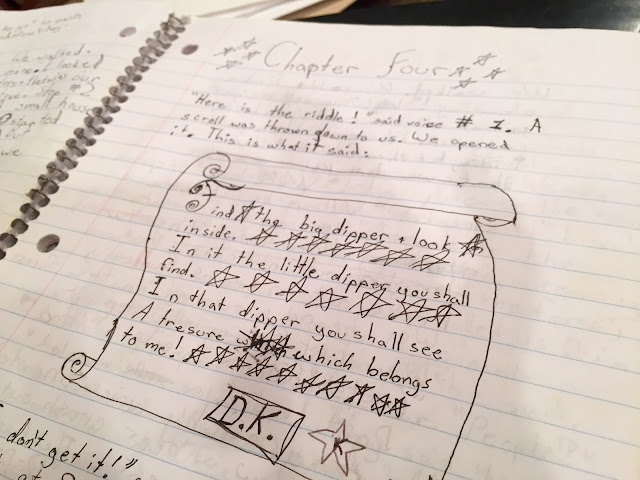 We walked
looked
our
#2
small house
out
we
Chapter Four
"Here is the riddle!" said voice # 1. A
scroll was thrown down to us. We opened
it. This is what it said:
Find the big dipper + look
inside.
In it the little dipper you shall
find.
In that dipper you shall see
A tresure which belongs
to me!
D.K.
K
don't get it!"